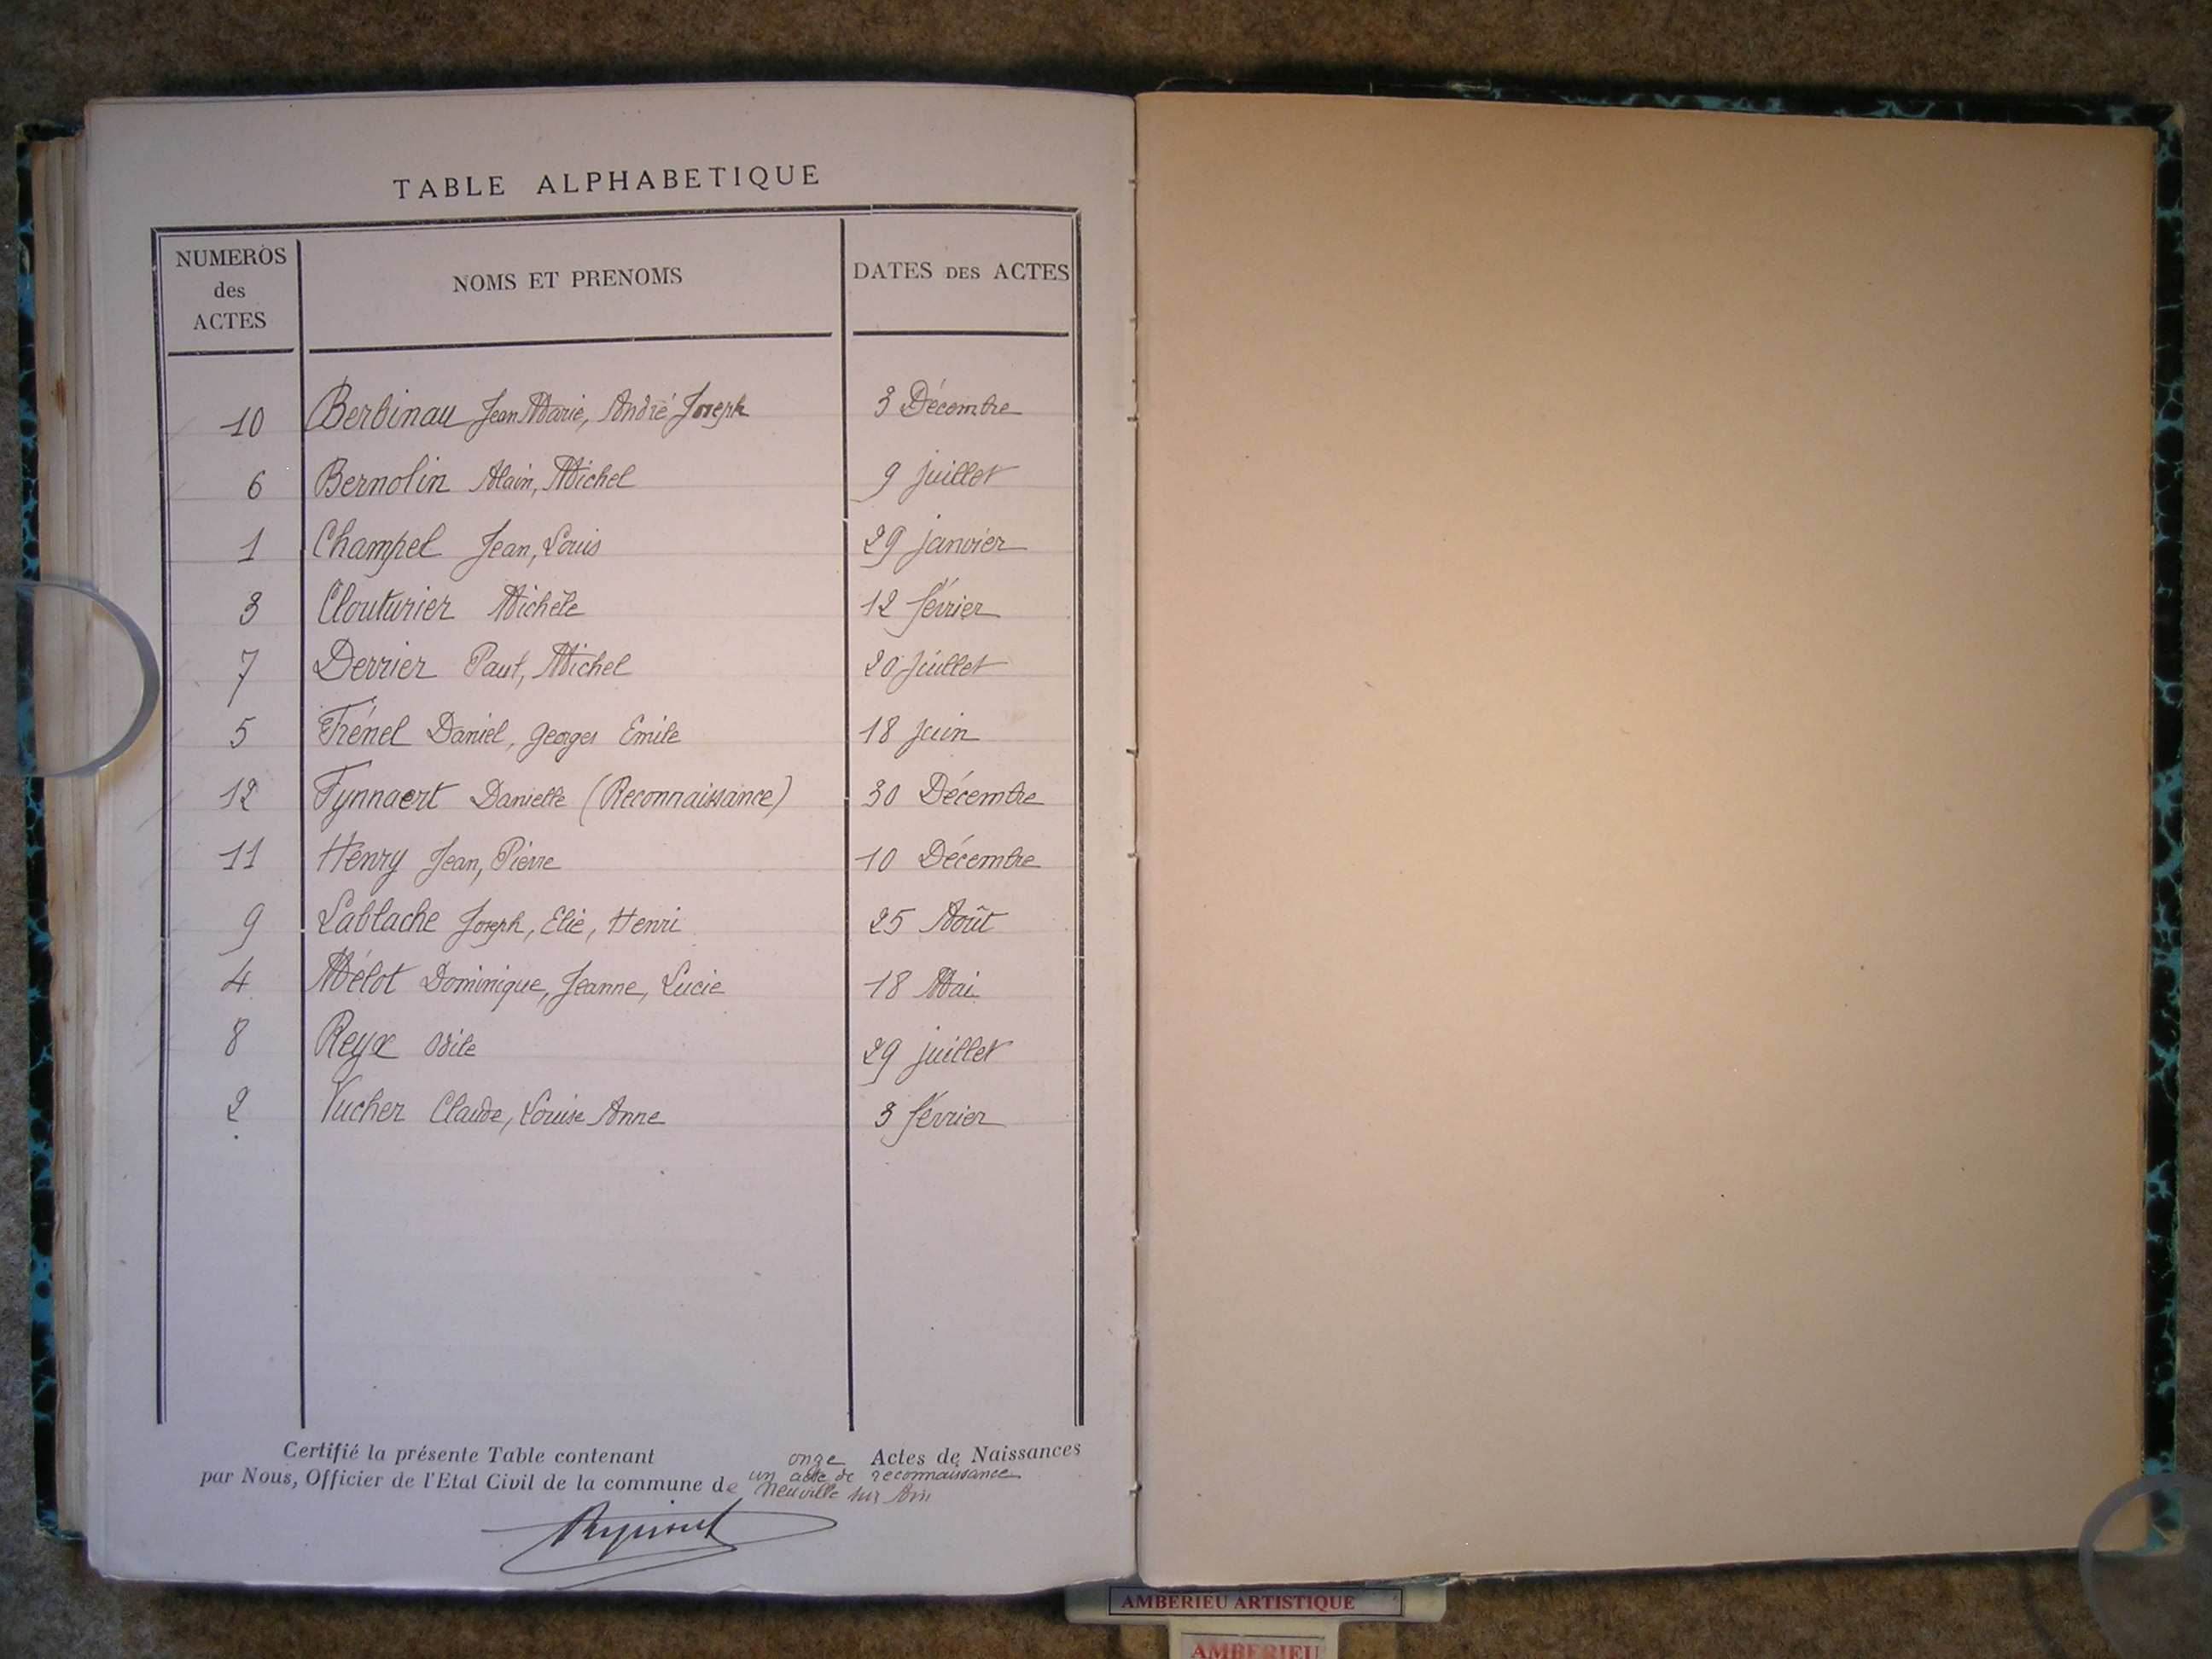 TABLE ALPHABETIQUE
NUMEROS des ACTES NOMS ET PRENOMS DATES DES ACTES
10 Berbinau Jean Marie, André Joseph 3 Décembre
6 Bernolin Alain, Michel 9 juillet
1 Champel Jean, Louis 29 janvier
3 Clouturier Michèle 12 février
7 Derrier Paul, Michel 20 juillet
5 Frénel Daniel, Georges Emile 18 juin
12 Fynnaert Danielle (Reconnaissance) 30 Décembre
11 Henry Jean, Pierre 10 Décembre
9 Lablache Joseph, Elie, Henri 25 Août
4 Mélot Dominique, Jeanne, Lucie 18 Mai
8 Reyx Odile 29 juillet
2 Vucher Claude, Louise Anne 3 février
Certifié la présente Table contenant onze Actes de Naissances
un acte de reconnaissance
par Nous, Officier de l'Etat Civil de la commune de Neuville sur Ain
AMBERIEU ARTISTIQUE
AMBERIEU